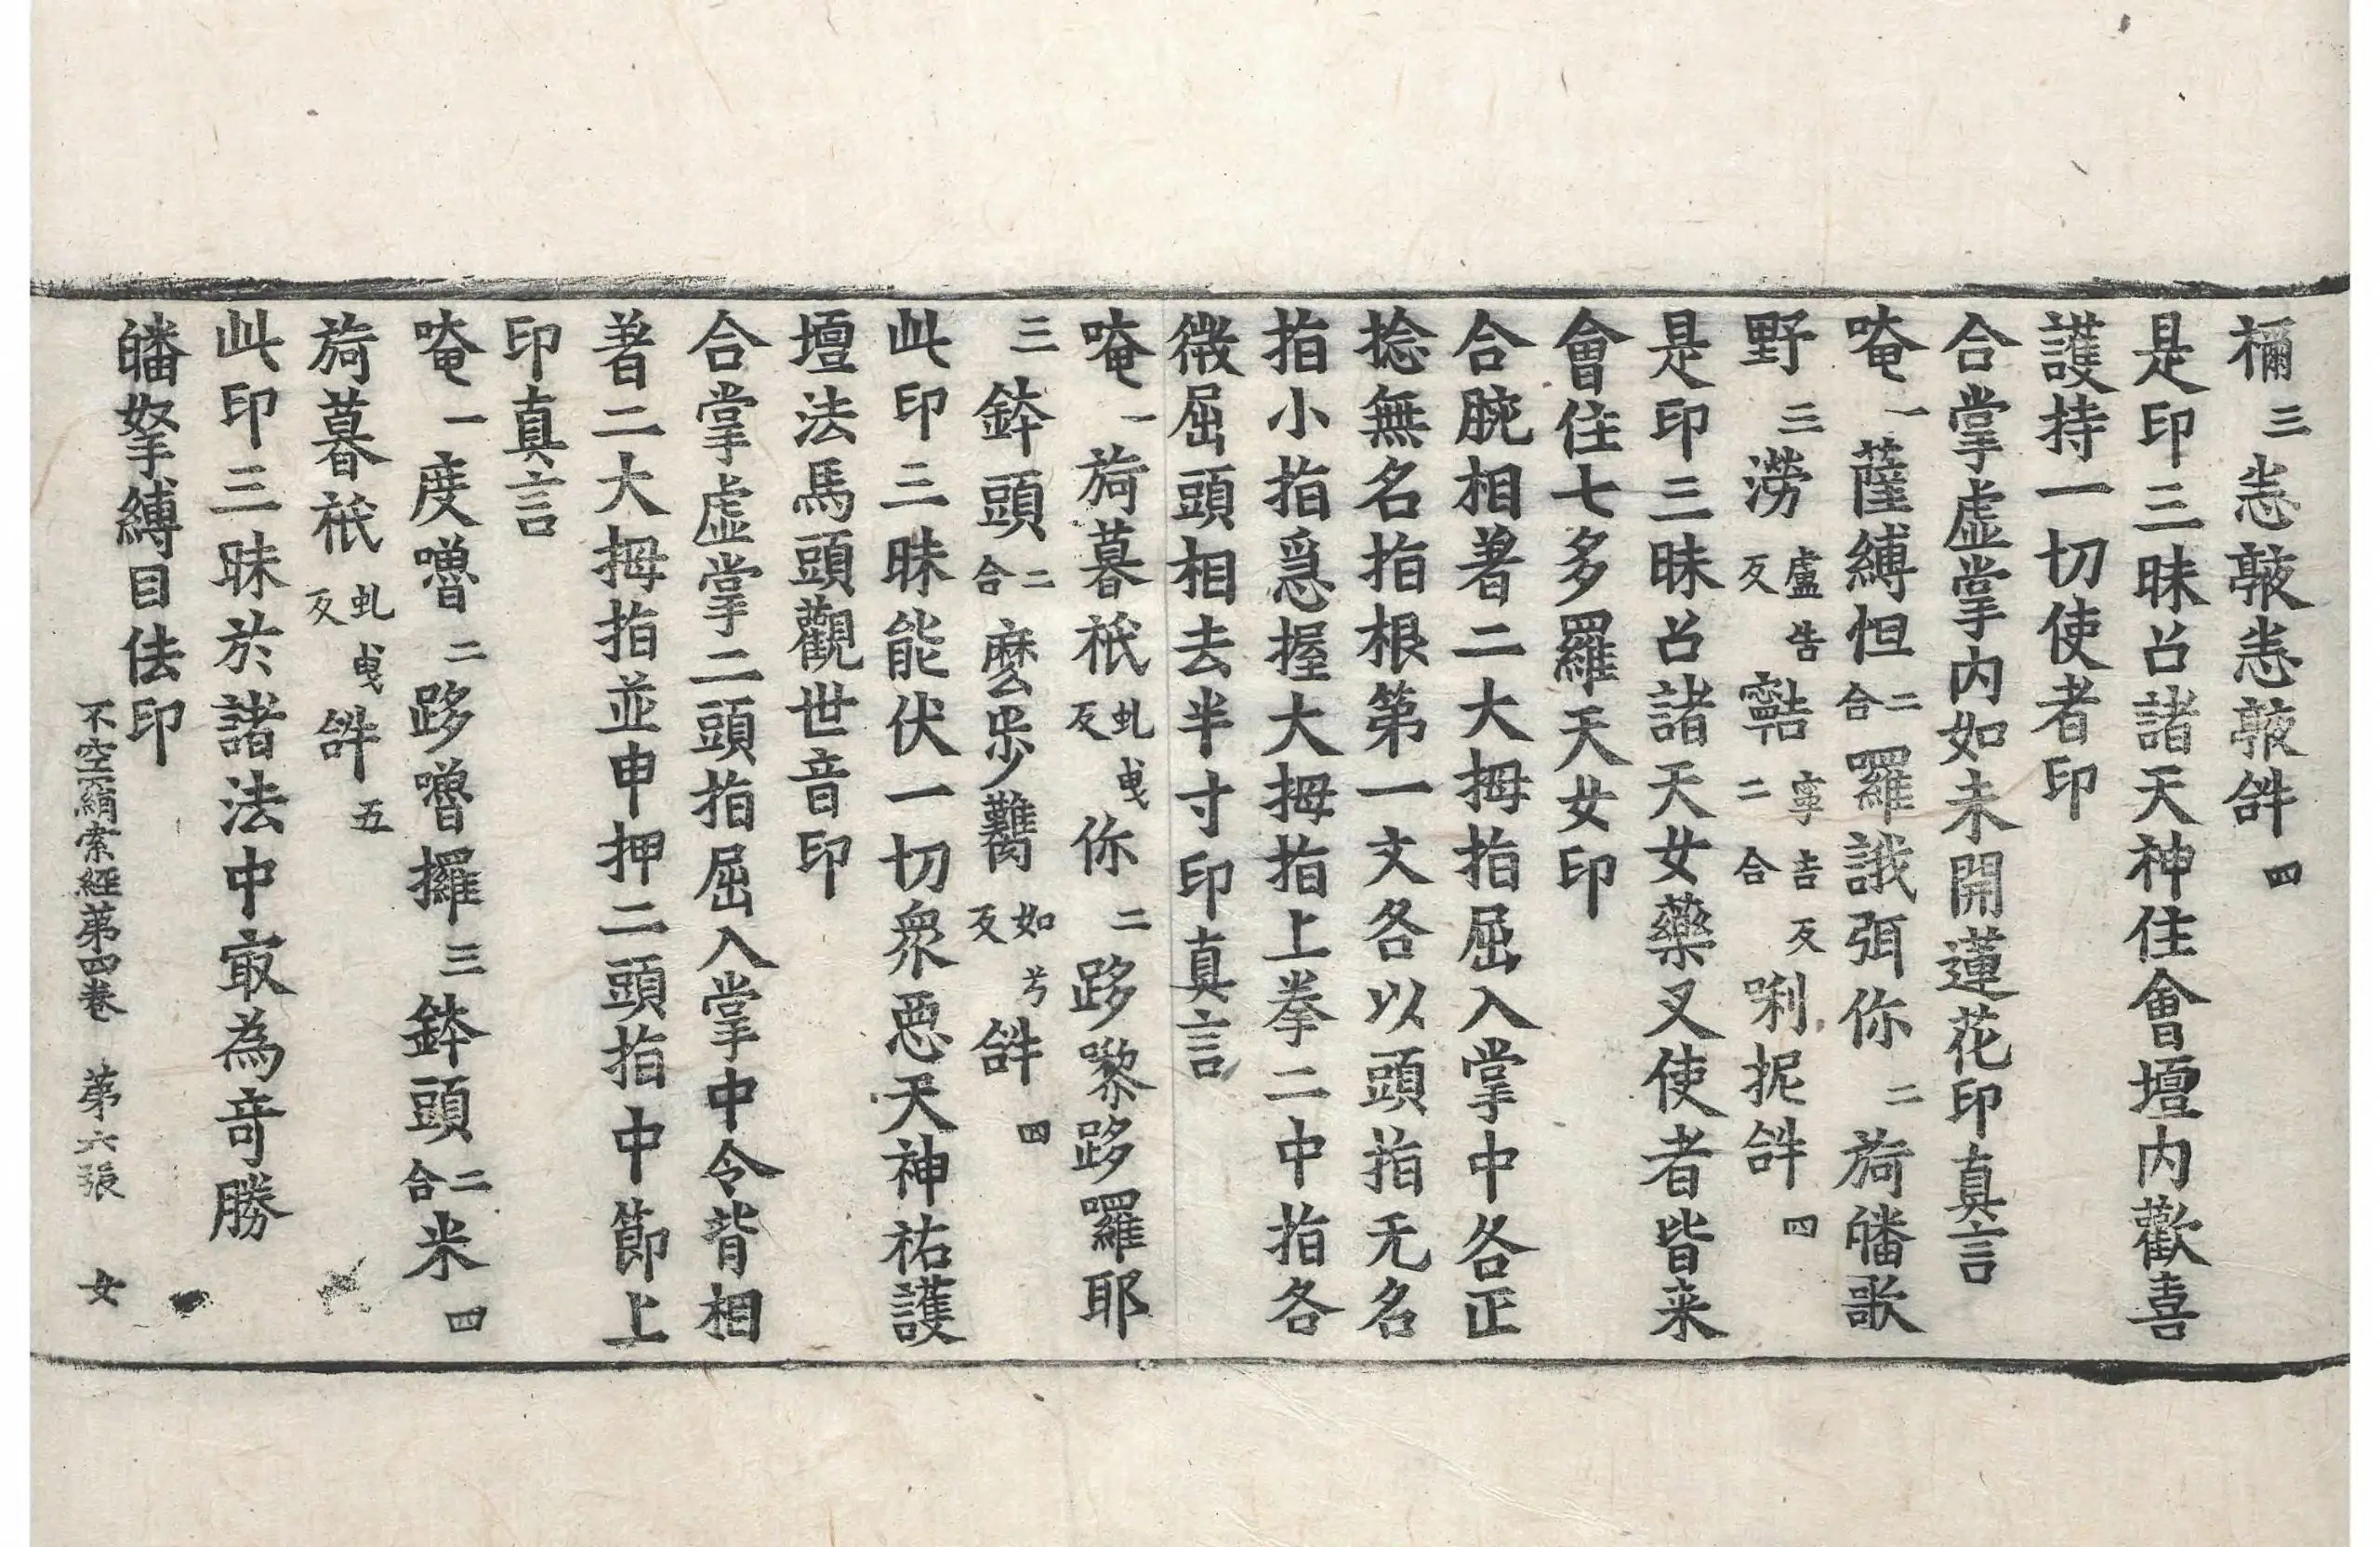 禰三恚䩭恚䩭𤙖四
是印三昧召諸天神住會壇內歡喜
護持一切使者印
合掌虛掌內如未開蓮花印真言
唵一薩縛怛二合羅誐弭你二旖皤歌
野三澇盧告反𩕳寧吉反二合唎抳𤙖四
是印三昧召諸天女藥叉使者皆来
會住七多羅天女印
合腕相著二大拇指屈入掌中各正
捻無名指根第一文各以頭指无名
指小指急握大拇指上拳二中指各
微屈頭相去半寸印真言
唵一旖暮袛虬曳反你二跢嚟跢羅耶
三鉢頭二合麼步臡如兮反𤙖四
此印三昧能伏一切衆惡天神祐護
壇法馬頭觀世音印
合掌虛掌二頭指屈入掌中令背相
著二大拇指並申押二頭指中節上
印真言
唵一度嚕二跢嚕攞三鉢頭二合米四
旖暮袛虬曳反𤙖五
此印三昧於諸法中㝡為竒勝
皤拏縛目佉印
不空羂索經苐四卷　苐六張　女